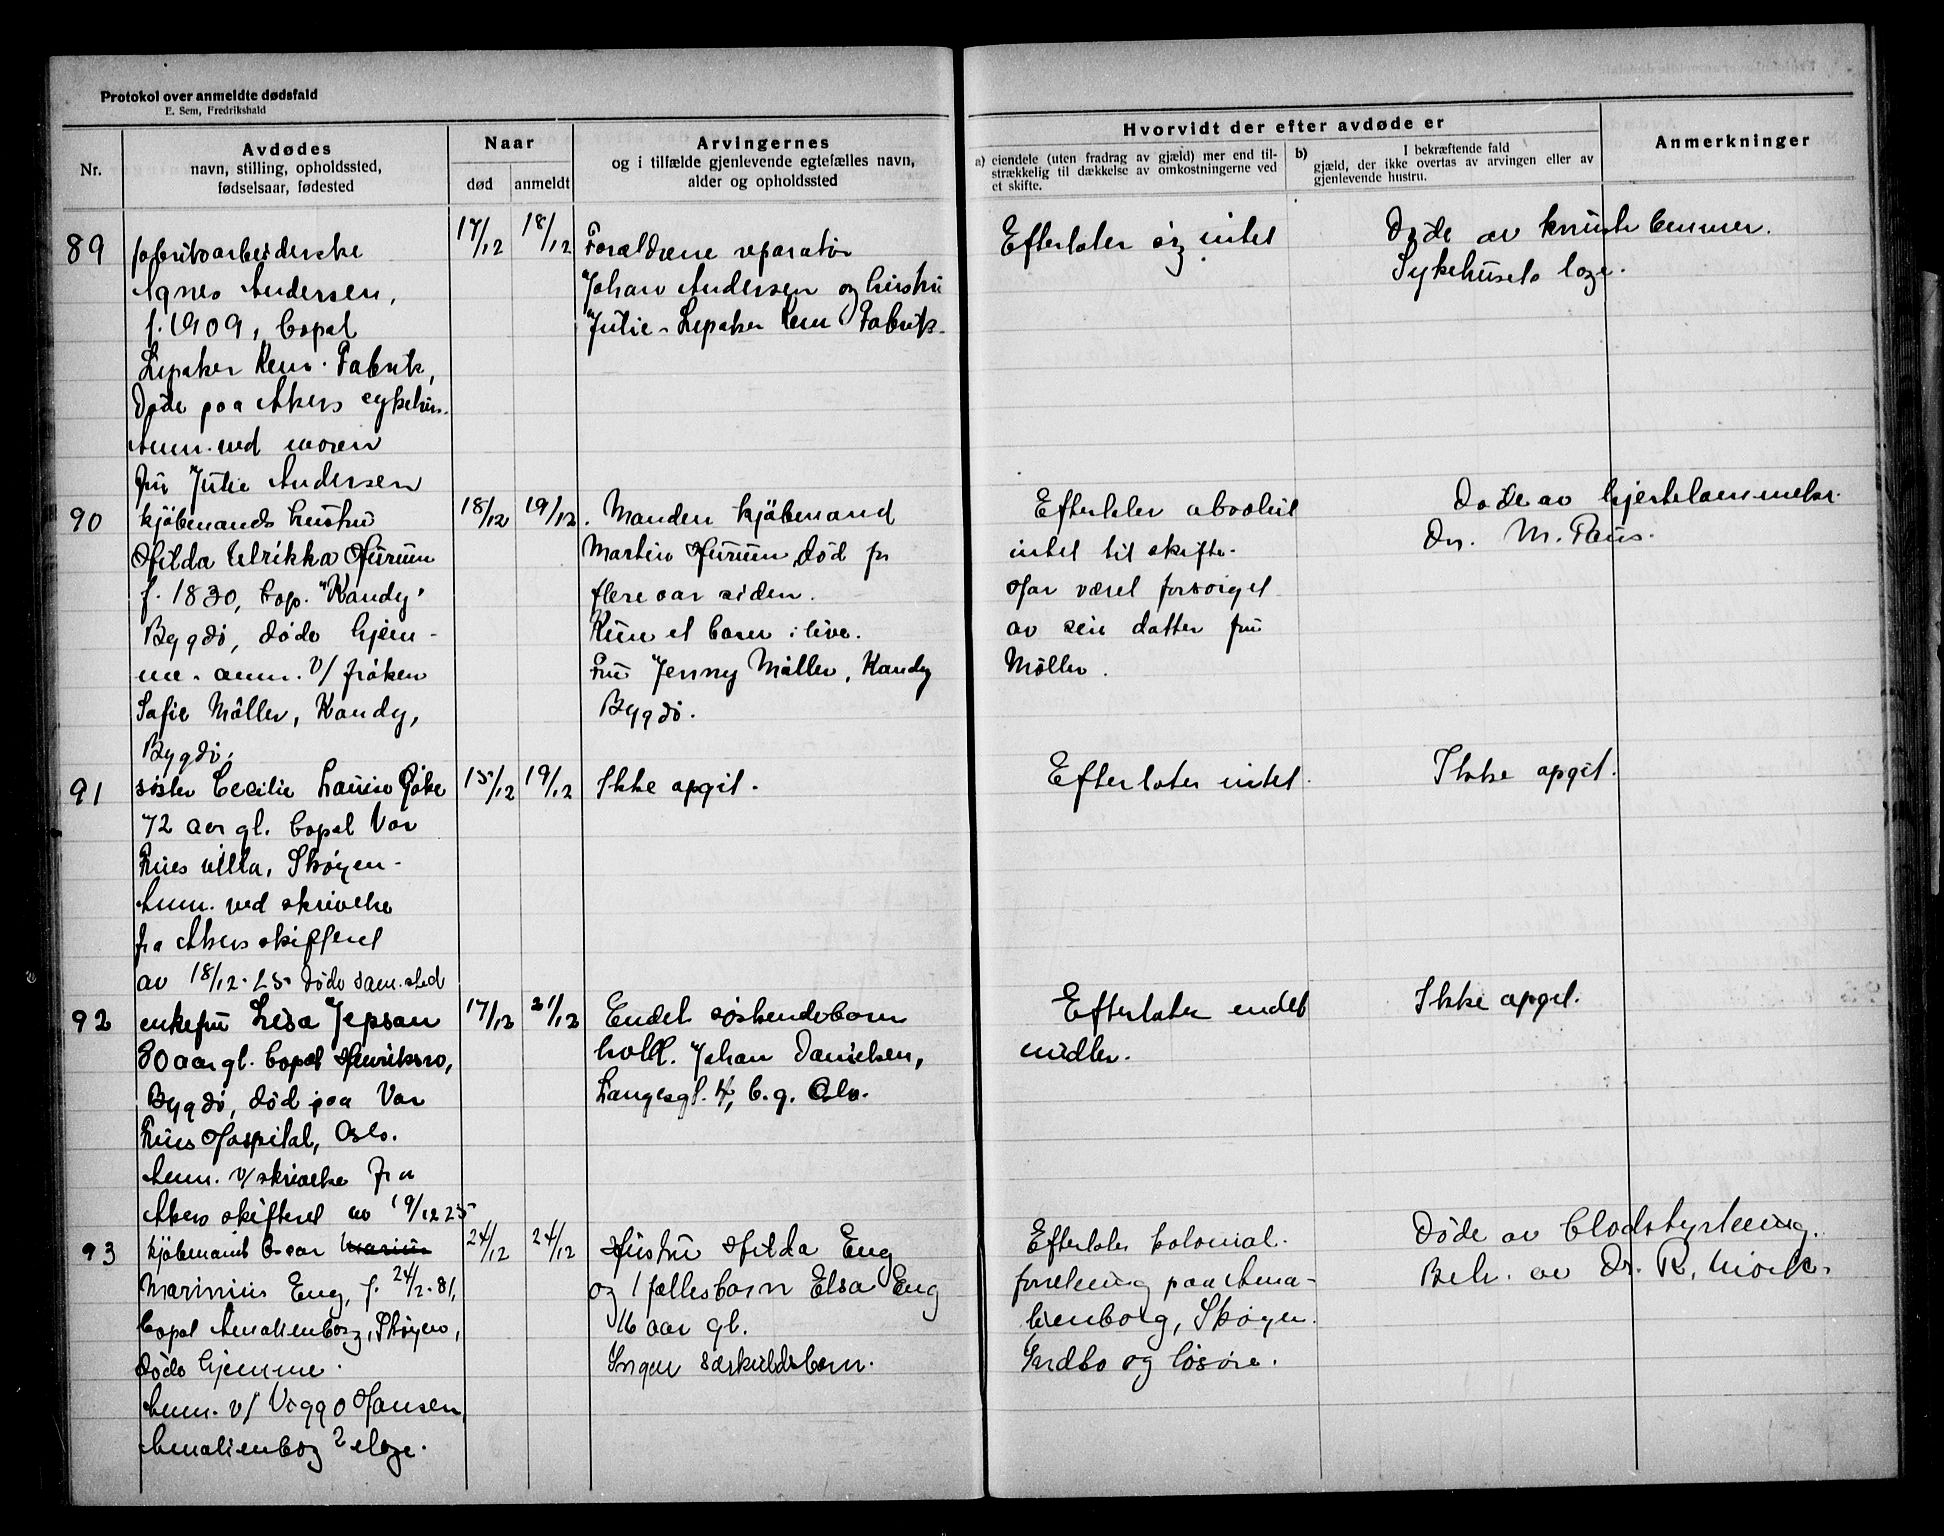 Protokol over anmeldte dødsfald
E. Sem, Fredrikshald
Nr.
Avdødes
navn, stilling, opholdssted,
fødselsaar, fødested
Naar
død
anmeldt
Arvingernes
og i tilfælde gjenlevende egtefælles navn,
alder og opholdssted
Hvorvidt der efter avdøde er
a) eiendele (uten fradrag av gjæld) mer end til-
strækkelig til dækkelse av omkostningerne ved
et skifte.
b) I bekræftende fald
gjæld, der ikke overtas av arvingen eller av
gjenlevende hustru.
Anmerkninger
89
fabrikarbeiderske
Agnes Andersen,
f. 1909, bopæl
Lysaker Kem. Fabrik,
Døde paa Akers sykehus.
Anm. ved moren
fru Julie Andersen
17/12
18/12
Forældrene reparatør
Johan Andersen og hustru
Julie - Lysaker Kem. Fabrik.
Efterlater sig intet
Døde av
Sykehusets læge.
90
kjøbmands hustru
Hilda Ulrikka Hurum
f. 1830, bop. "Kandy"
Bygdø, døde hjem-
me. anm. v/ frøken
Sofie Møller, Kandy,
Bygdø.
18/12
19/12
Manden kjøbmand
Martin Hurum død for
flere aar siden.
Kun et barn i live.
Fru Jenny Møller, Kandy
Bygdø.
Efterlater absolut
intet til skifte.
Har været forsørget
av sin datter fru
Møller.
Døde av hjertelammelse.
Dr. M. Paus.
91
søster Cecilie Louise
72 aar gl. bopæl Vor
Frues villa, Skøyen.
Anm. ved skrivelse
fra Akers skifteret
av 18/12-25. Døde sam. sted
15/12
19/12
Ikke opgit.
Efterlater intet.
Ikke opgit.
92
enkefru Lisa Jepsan
80 aar gl. bopæl Henriksro,
Bygdø, død paa Vor
Frues Hospital, Oslo.
Anm. v/ skrivelse fra
Akers skifteret av 19/12 25
17/12
21/12
Endel søskendebarn
hvoraf. Johan Danielsen,
Langesgt. 4, b. g. Oslo.
Efterlater endel
midler.
Ikke opgit.
93
kjøbmand Oscar Marius
Marinius Eng, f. 24/2-81,
bopæl Amalienborg, Skøyen,
døde hjemme.
Anm. v/ Viggo Hansen,
Amalienborg 2 etage.
24/12
24/12
Hustru Hilda Eng
og 1 fællesbarn Elsa Eng
16 aar gl.
Ingen særkuldsbarn.
Efterlater kolonial.
forretning paa Ama-
lienborg, Skøyen.
Indbo og løsøre.
Døde av blodstyrtning.
Beh. av Dr. R. Mork.